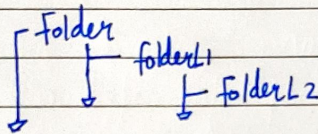 folder
folderL1
folderL2